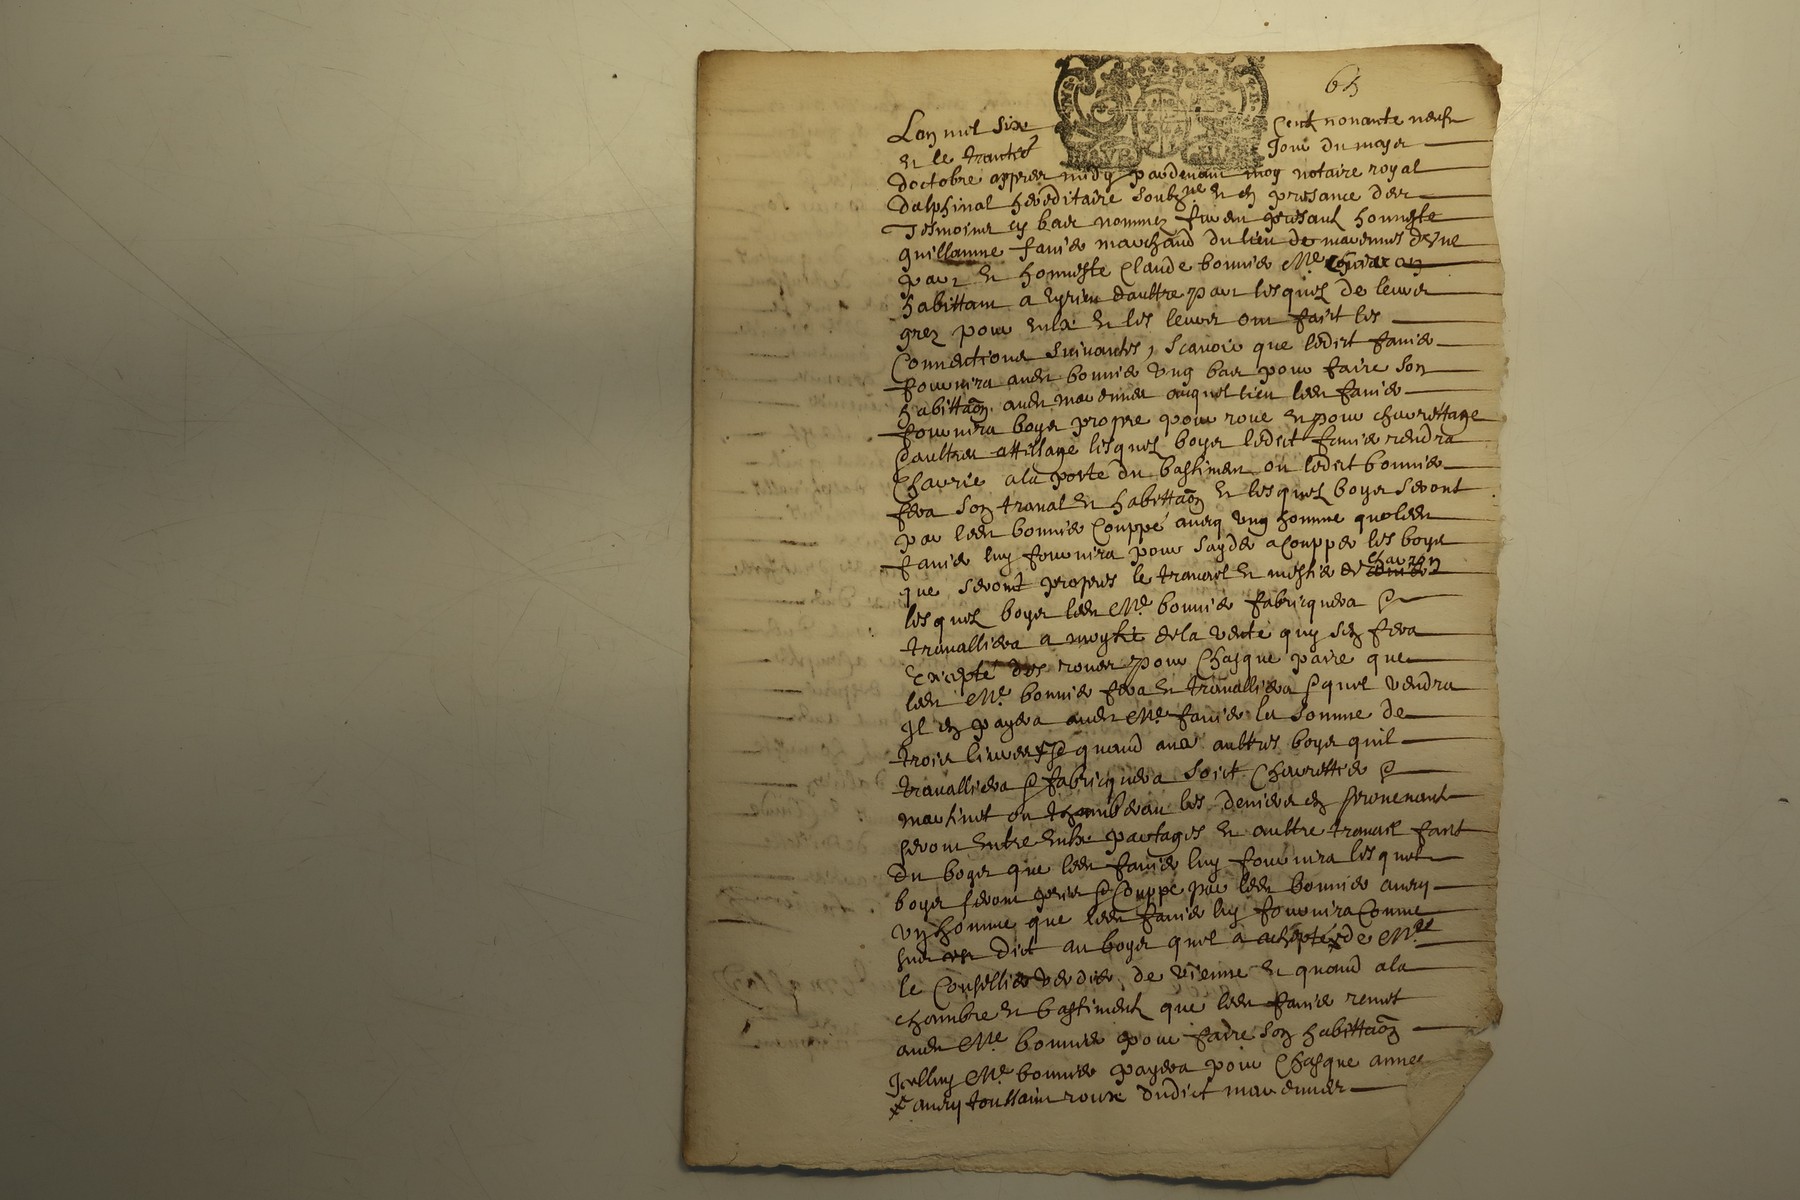 65
Lan mil six Cent nonante neufz
et le trante Jour du moys
doctobre appres midy pardevant moy notaire royal
dalphinal hereditaire soubzne et en presance des
tesmoins cy bas nommez fut en presant honneste
guillaume fanier marchand du lieu de marennes dune
part et honneste Claude bonnier Me charron
habittant a dautre part lesquels de leurs
grez pour eulx et les leurs ont faict les
Conventions suivantes, scavoir que ledict fanier
fournira audt bonnier ung bas pour faire son
habittaon audt marennes auquel lieu ledt fanier
fournira boys propre pour roue et pour charrettage
dautres attillage lesquels boys ledict fanier rendra
Charrié a la porte du bastiment ou ledict bonnier
fera son traval et habittaon et lesquels boys seront
par ledt bonnier Couppé avecq ung homme que ledt
fanier luy fournira pour sayder a Coupper les boys
que seront propres le travail et mestier de charron
lesquels boys ledt Me bonnier fabriquera &
travalliera a moytié de la vente quy sen fera
Excepté des roues pour Chasque paire que
ledt Me bonnier fera et travalliera & quil vendra
Il en payera audt Me fanier la somme de
trois livres & quand aux aultres boys quil
travalliera & fabriquera soict Charrettier &
ou thombereau les deniers en provenant
seront entre eulx partages et aultre travail faict
du boys que ledt fanier luy fournira lesquels
boys seront & Couppé par ledt bonnier avecq
un homme que ledt fanier luy fournira Comme
sus est dict au boys quil a achepté de Mr
le Conseillier verdier de vienne et quand a la
chambre et bastiment que ledt fanier remet
audt Me bonnier pour faire son habittaon
Icelluy Me bonnier payera pour Chasque annee
avecq toussaint roux dudict marennes